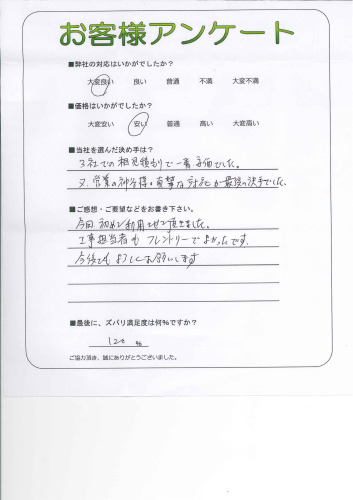 お客様アンケート
■弊社の対応はいかがでしたか?
大変良い 良い 普通 不満 大変不満
■価格はいかがでしたか?
大変安い 安い 普通 高い 大変高い
■当社を選んだ決め手は?
3社での相見積もりで一番安価でした。
又、営業の神谷様の真摯な対応が最後の決手でした。
■ご感想・ご要望などをお書き下さい。
今回初めて利用させて頂きました。
工事担当者もフレンドリーでよかったです。
今後ともよろしくお願いします
■最後に、ズバリ満足度は何%ですか?
120 %
ご協力頂き、誠にありがとうございました。